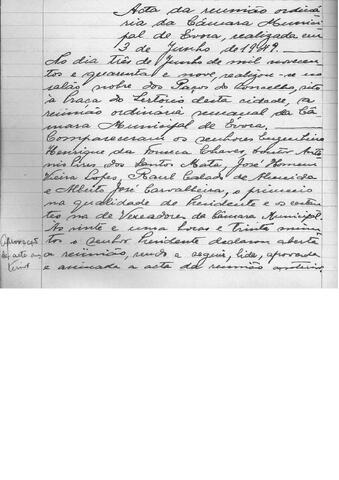 Acta da reunião ordiná-
ria da Câmara Munici-
pal de Évora, realizada em
3 de Junho de 1949.
Ao dia três de Junho de mil novecen-
tos e quarenta e nove, realizou-se no
salão nobre dos Paços do Concelho, sito
à Praça do Sertório desta cidade, a
reunião ordinária semanal da Câ-
mara Municipal de Évora.
Compareceram os senhores Engenheiro
Henrique da Fonseca Chaves, Doutor Arté-
mis Pires dos Santos Mata, José Homem
Vieira Lopes, Raul Calado de Almeida
e Alberto José Carvalheira, o primeiro
na qualidade de Presidente e os restan-
tes na de Vereadores da Câmara Municipal.
Às vinte e uma horas e trinta minu-
tos o senhor Presidente declarou aberta
a reünião, sendo a seguir, lida, aprovada
e assinada a acta da reunião anterior
Aprovação
da acta an
terior